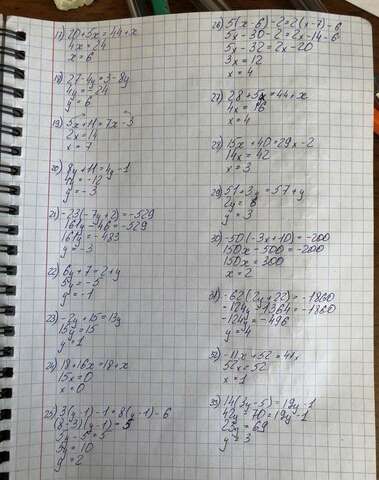 17) 20+5x=44+x
4x=24
x=6
18) 27-4y=3-8y
4y=-24
y=6
19) 5x+11=7x-3
2x=14
x=7
20) 8y+11=4y-1
4y=-12
y=-3
21) -23(-7y+2)=-529
161y-46=-529
161y=-483
y=-3
22) 6y+7=2+y
5y=-5
y=-1
23) -2y+15=13y
15y=15
y=1
24) 18+16x=18+x
15x=0
x=0
25) 3(y-1)-1=8(y-1)-6
(8-3)(y-1)=5
5y-5=5
5y=10
y=2
26) 5(x-6)-2=2(x-7)-6
5x-30-2=2x-14-6
5x-32=2x-20
3x=12
x=4
27) 28+5x=44+x
4x=16
x=4
28) 15x+40=29x-2
14x=42
x=3
29) 51+3y=57+y
2y=6
y=3
30) -50(-3x+10)=-200
150x-500=-200
150x=300
x=2
31) -62(2y+22)=-1860
-124y-1364=-1860
-124y=-496
y=4
32) -11x+52=41x
52x=52
x=1
33) 14(3y-5)=19y-1
42y-70=19y-1
23y=69
y=3